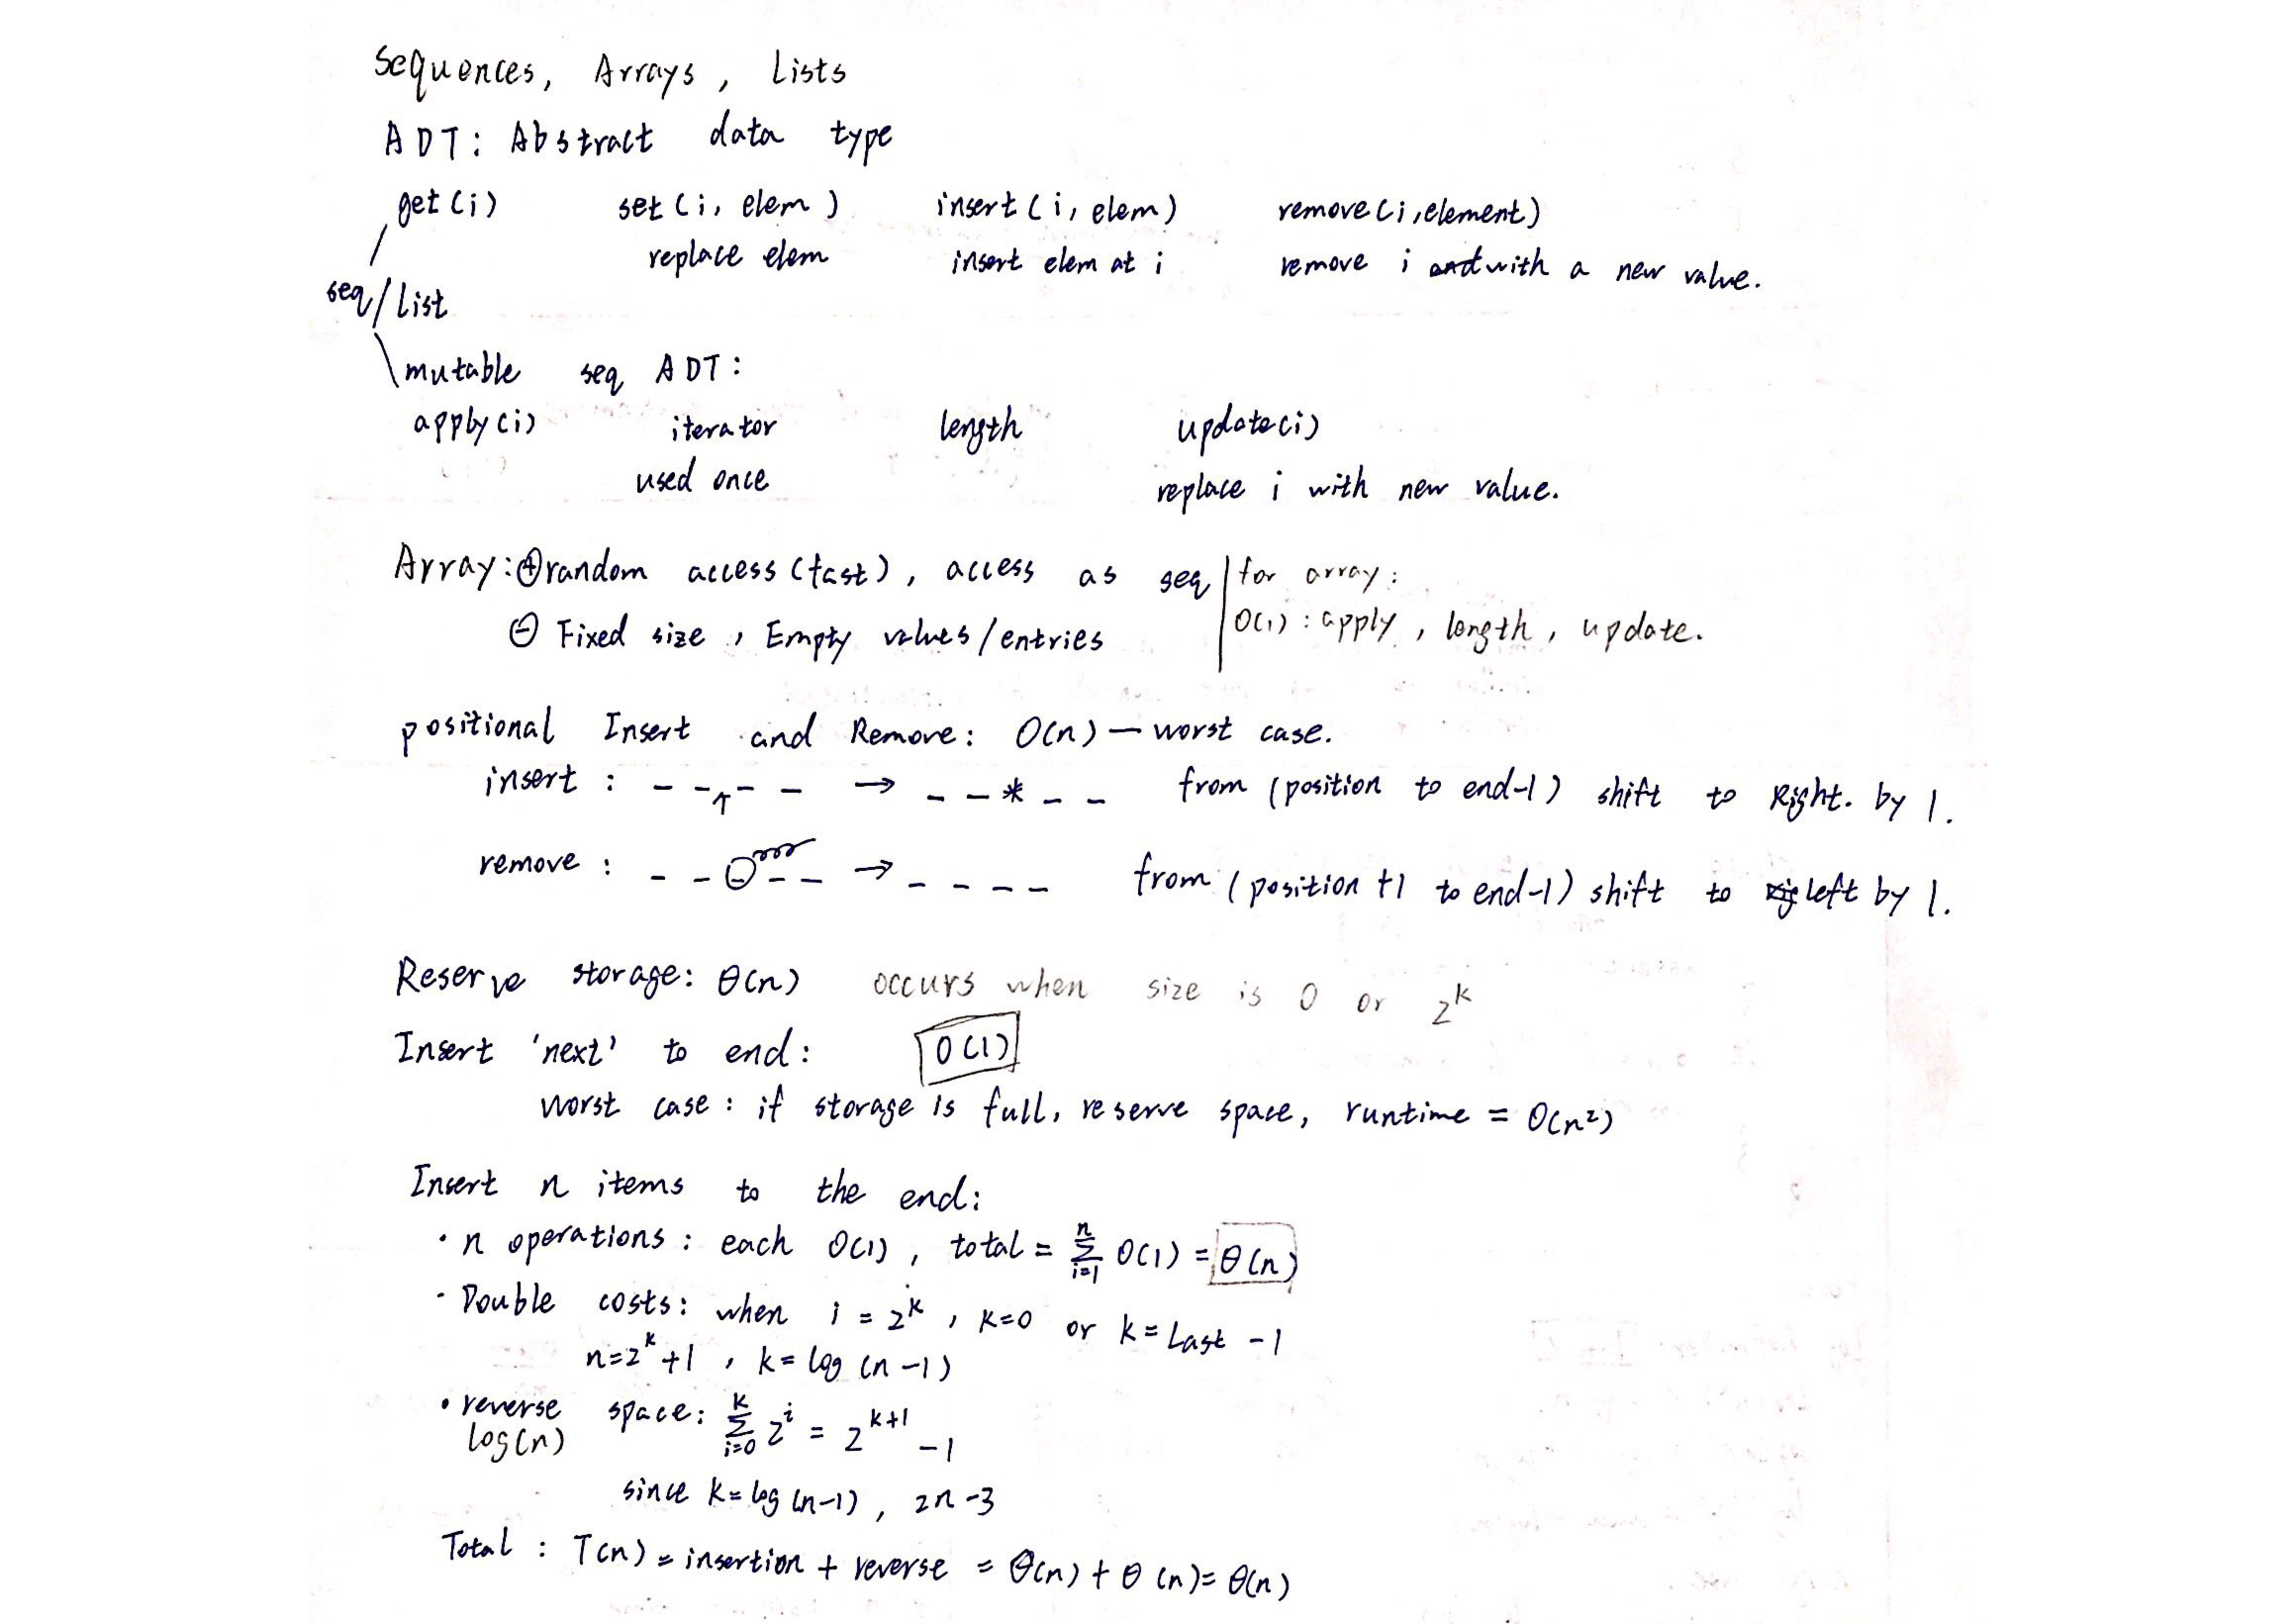 Sequences, Arrays, Lists
ADT: Abstract data type
get(i) set(i, elem) insert(i, elem) remove(i, element)
replace elem insert elem at i remove i and with a new value.
seq/List
mutable seq ADT:
apply(i) iterator length update(i)
used once replace i with new value.
Array: ⊕ random access (fast), access as seq | for array:
⊖ Fixed size, Empty values/entries | O(1): apply, length, update.
positional Insert and Remove: O(n) — worst case.
insert: _ _ ↑ _ _ → _ _ * _ _ from (position to end-1) shift to Right. by 1.
remove: _ _ _ _ _ → _ _ _ _ from (position +1 to end-1) shift to Rig left by 1.
Reserve storage: θ(n) occurs when size is 0 or 2^k
Insert 'next' to end: O(1)
worst case: if storage is full, reserve space, runtime = O(n²)
Insert n items to the end:
• n operations: each O(1), total = Σ_{i=1}^{n} O(1) = θ(n)
• Double costs: when i = 2^k, k=0 or k = Last -1
n=2^k+1, k = log(n-1)
• reverse space: Σ_{i=0}^{k} 2^i = 2^{k+1} -1
log(n)
since k = log(n-1), 2n-3
Total: T(n) = insertion + reverse = θ(n) + θ(n) = θ(n)